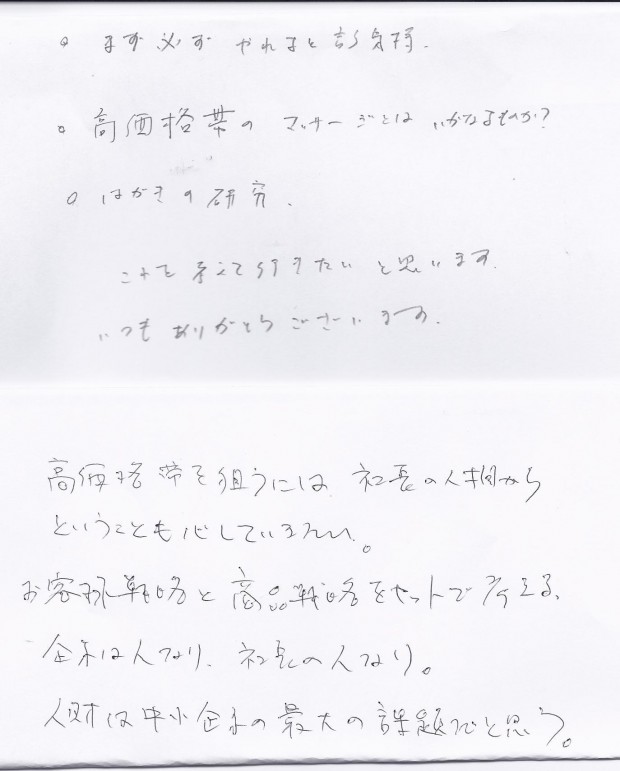 ○ まず必ずやれると言う気持.
○ 高価格帯のマッサージとはいかなるものか?
○ はがきの研究.
これを考えて行きたいと思います.
いつもありがとうございます.
高価格帯を狙うには 社長の人相から
ということも心していきたい。
お客様戦略と商品戦略をセットで考える、
企業は人なり、社長の人なり。
人財は中小企業の最大の課題だと思う。